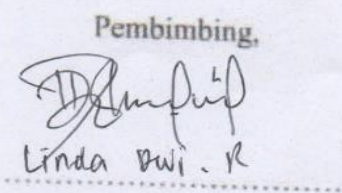 Pembimbing,
Linda Dwi. R